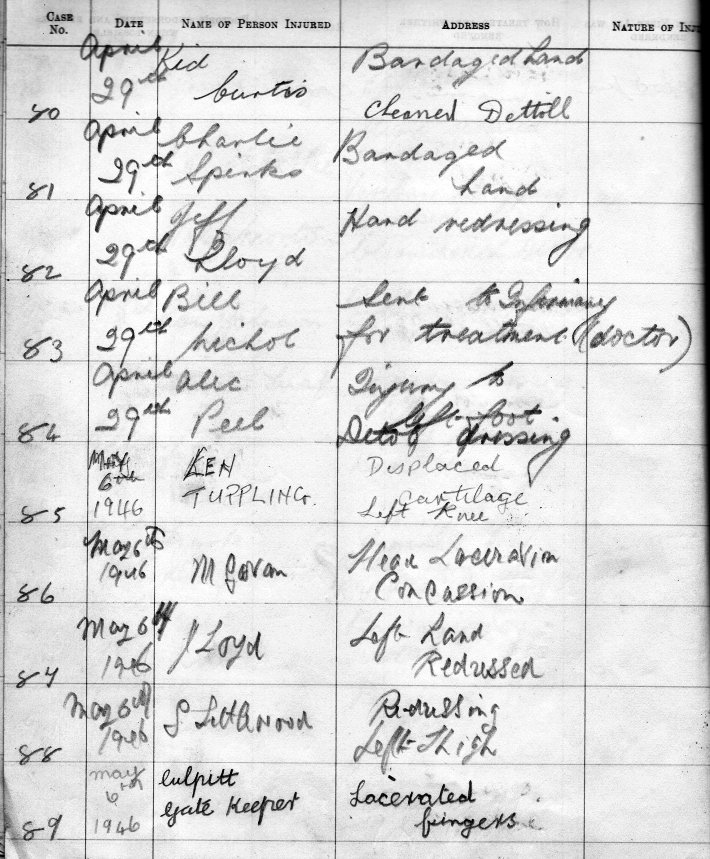 CASE No. DATE NAME OF PERSON INJURED ADDRESS NATURE OF INJ
April Kid Bandaged hand
80 29th Curtis Cleaned Dettoll
April Charlie Bandaged
81 29th Spinks hand
April Jeff Hand redressing
82 29th Lloyd
April Bill Sent to Infirmary
83 29th Nichol for treatment (doctor)
April Alec Injury to
left foot
84 29th Peel Detol dressing
May KEN Displaced
6th Cartilage
85 1946 TUPPLING. Left Knee
May 6th Head Laceration
86 1946 M Govan Concassion
May 6th Left Hand
87 1946 J Loyd Redussed
May 6th Redussing
88 1946 S Littlewood Left Thigh
may Culpitt
6th Gate Keeper Lacerated
89 1946 fingers